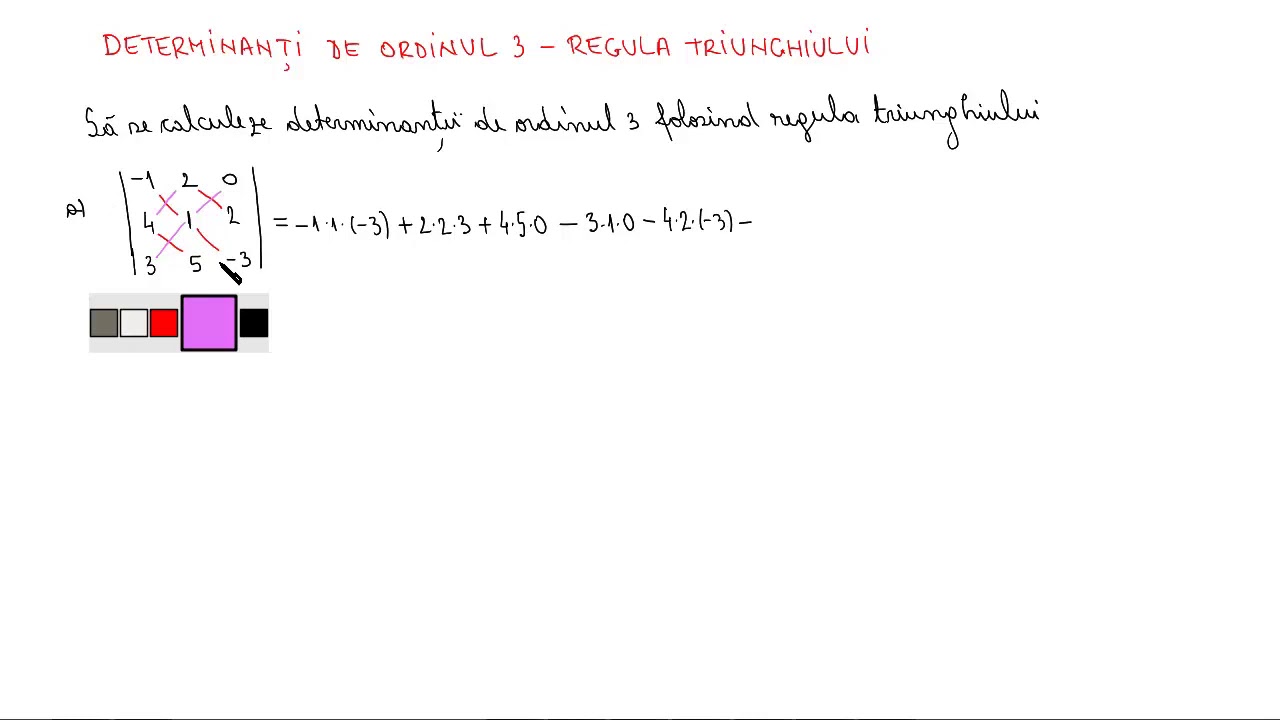 DETERMINANȚI DE ORDINUL 3 – REGULA TRIUNGHIULUI
Să se calculeze determinanții de ordinul 3 folosind regula triunghiului
-1 2 0
a) 4 1 2 = -1·1·(-3) + 2·2·3 + 4·5·0 – 3·1·0 – 4·2·(-3) –
3 5 -3